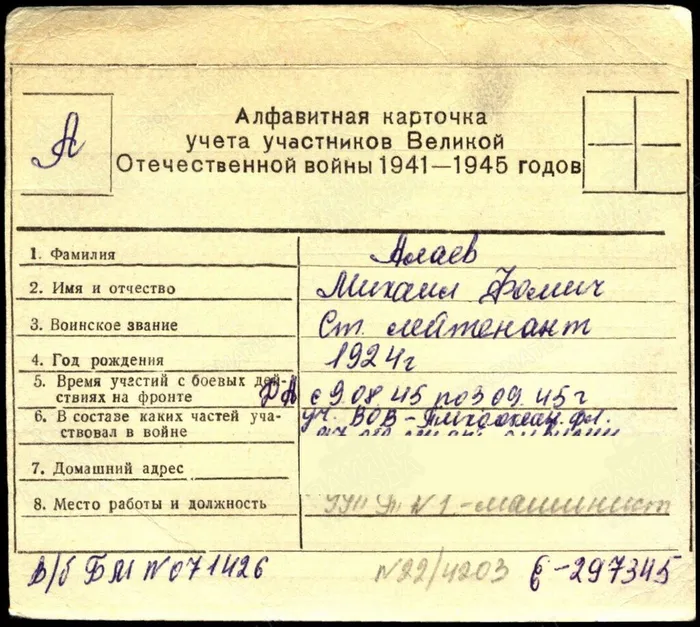 А
Алфавитная карточка
учета участников Великой
Отечественной войны 1941—1945 годов
1. Фамилия Алаев
2. Имя и отчество Михаил Фомич
3. Воинское звание Ст. лейтенант
4. Год рождения 1924г
5. Время участий с боевых дей-
ствиях на фронте с 9.08.45 по 3.09.45г
6. В составе каких частей уча- уч. ВОВ-Тихоокеан. фл.
ствовал в войне
7. Домашний адрес
8. Место работы и должность №1-машинист
В/б БМ №071426 N22/4203 -297345